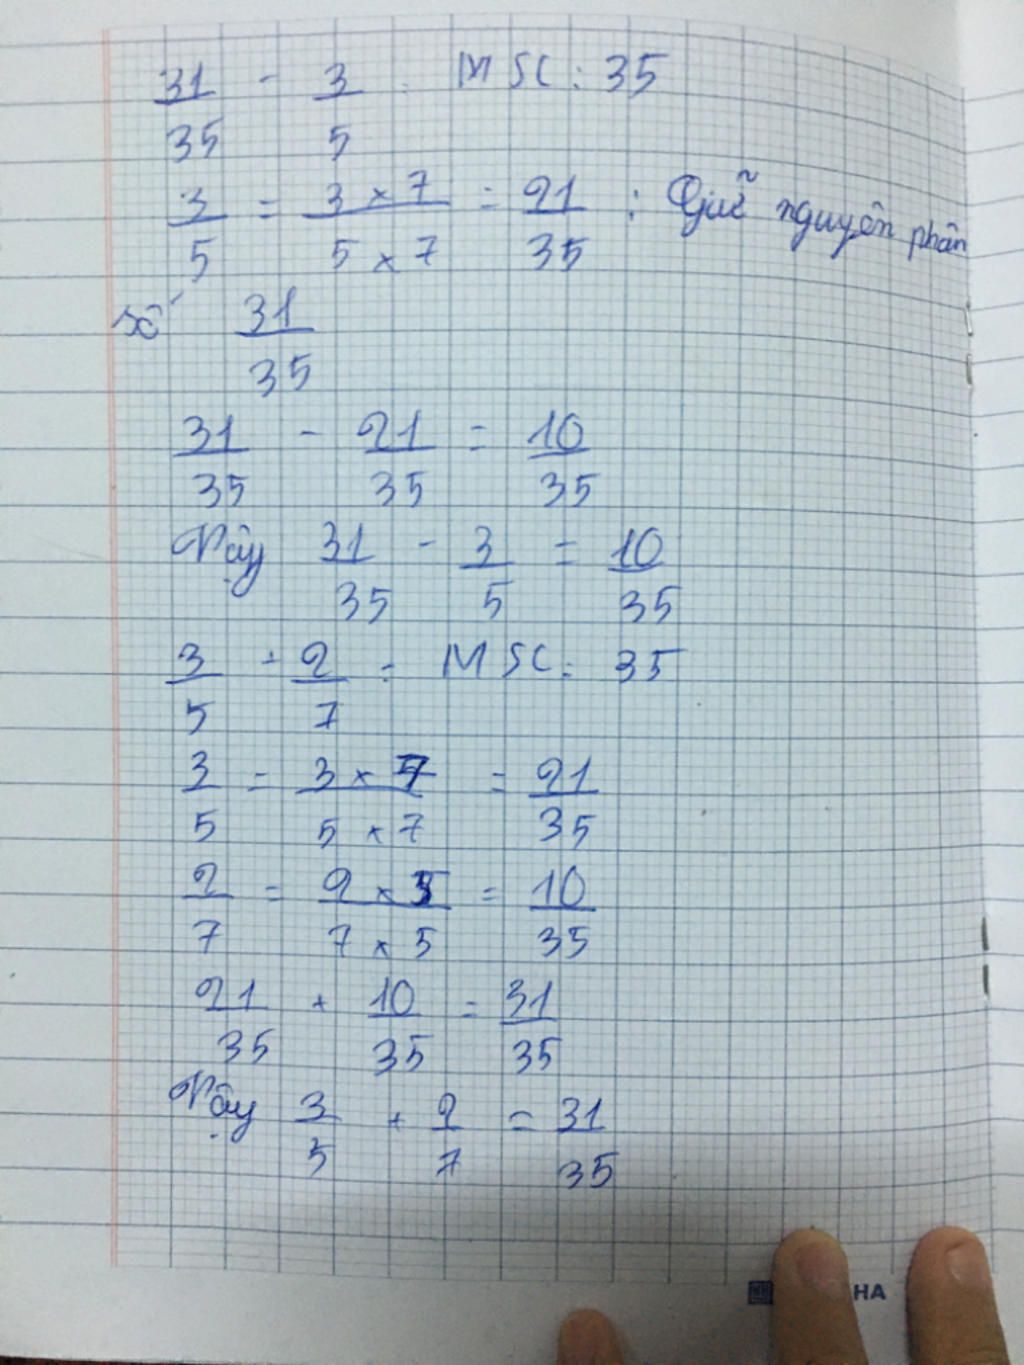 31/35 - 3/5 : MSC: 35
3/5 = 3 x 7/5 x 7 = 21/35 ; Giữ nguyên phân
số 31/35
31/35 - 21/35 = 10/35
Vậy 31/35 - 3/5 = 10/35
3/5 + 2/7 : MSC: 35
3/5 = 3 x 7/5 x 7 = 21/35
2/7 = 2 x 5/7 x 5 = 10/35
21/35 + 10/35 = 31/35
Vậy 3/5 + 2/7 = 31/35
HA